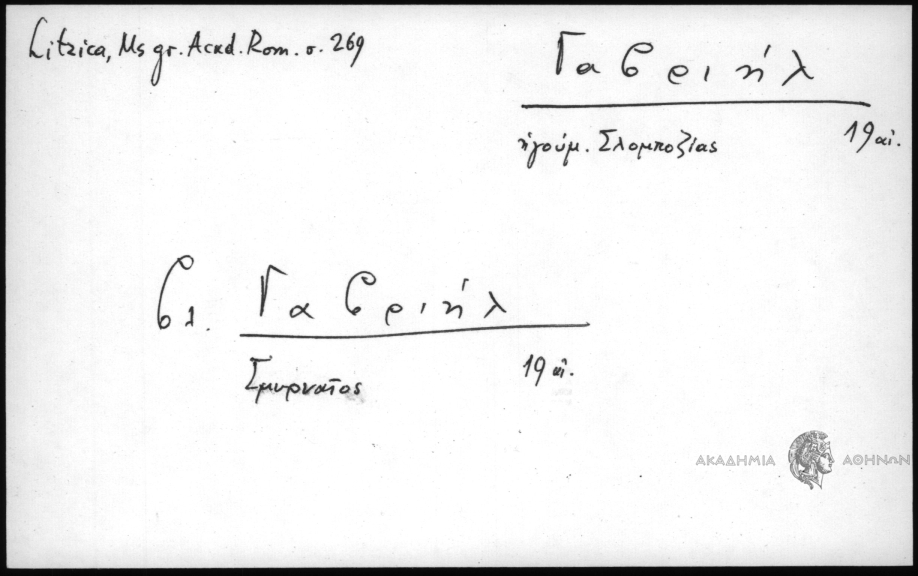 Litzica, Ms gr. Acad. Rom. σ. 269
Γαβριήλ
ἡγούμ. Σλομποζίας 19 αἰ.
βλ. Γαβριήλ
Σμυρναῖος 19 αἰ.
ΑΚΑΔΗΜΙΑ ΑΘΗΝΩΝ